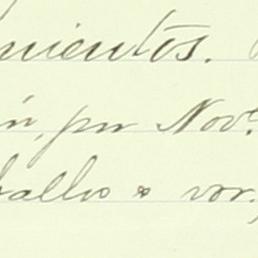 mientos.
ón, por Nov.
ballos o vor,